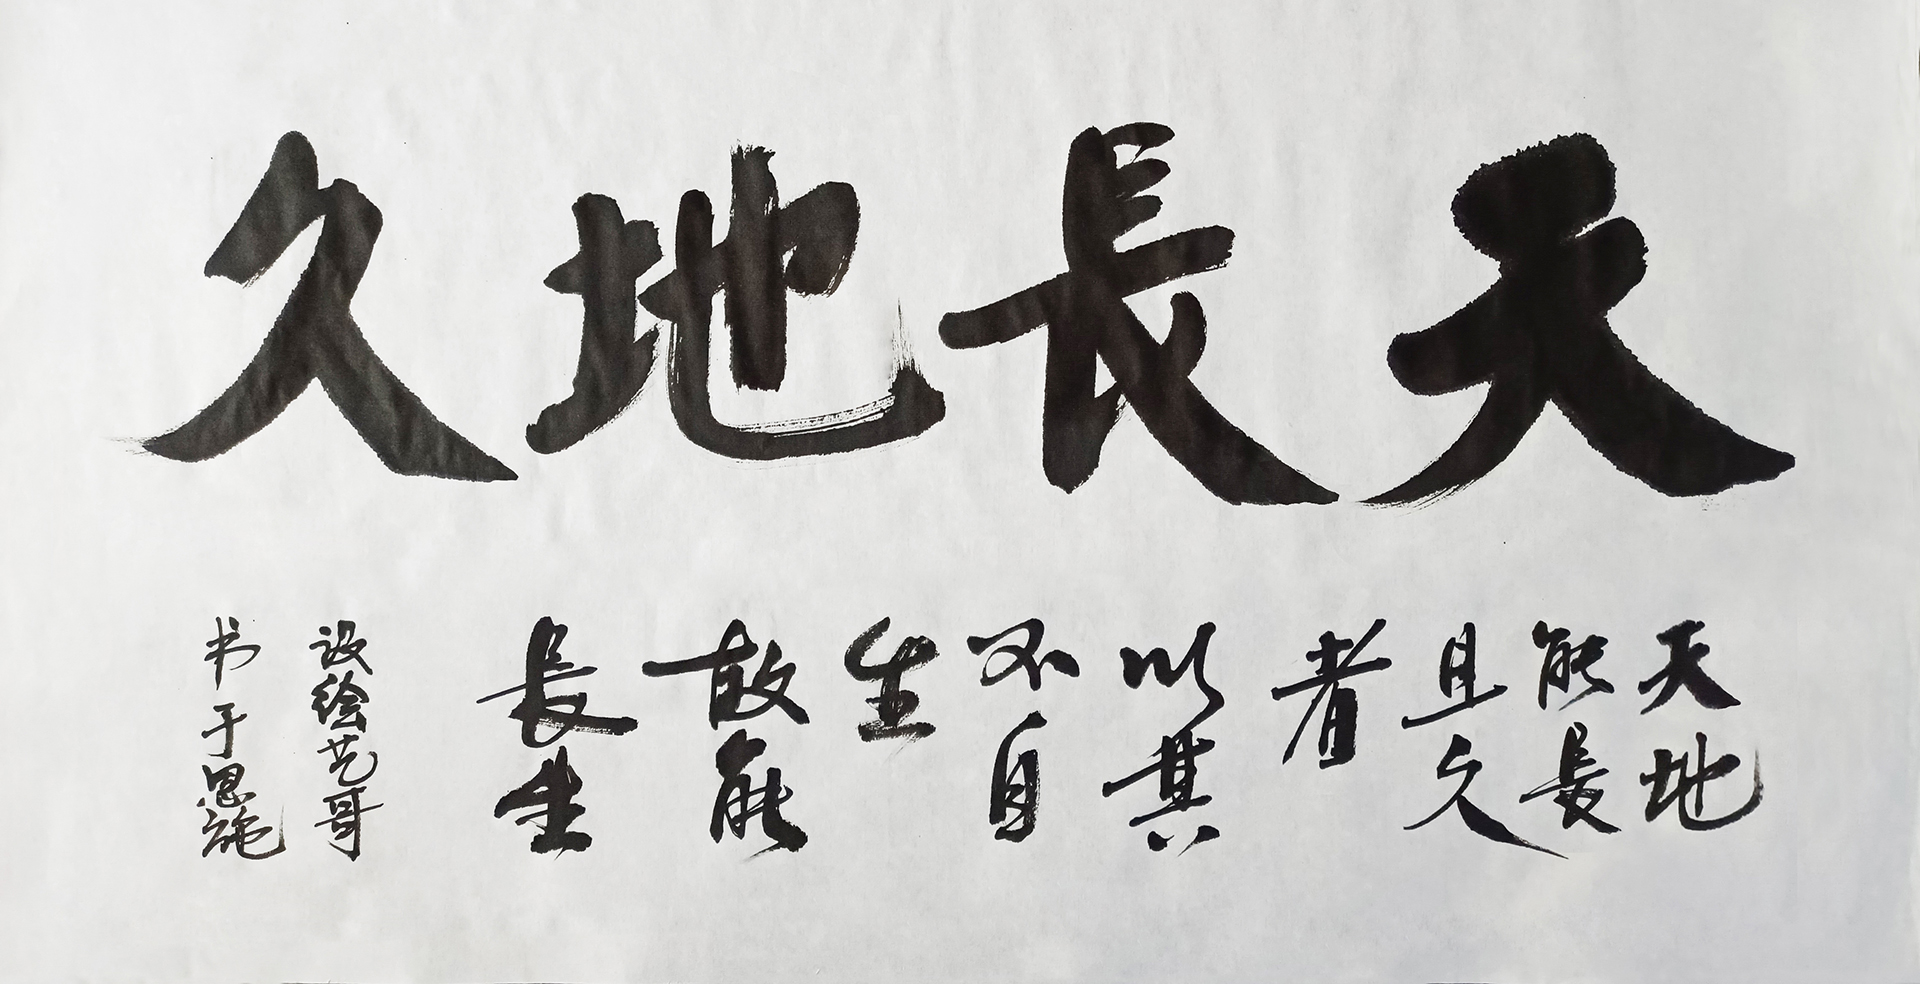 天長地久
天地
能長
且久
者
以其
不自
生
故能
長生
设绘艺哥
书于恩施